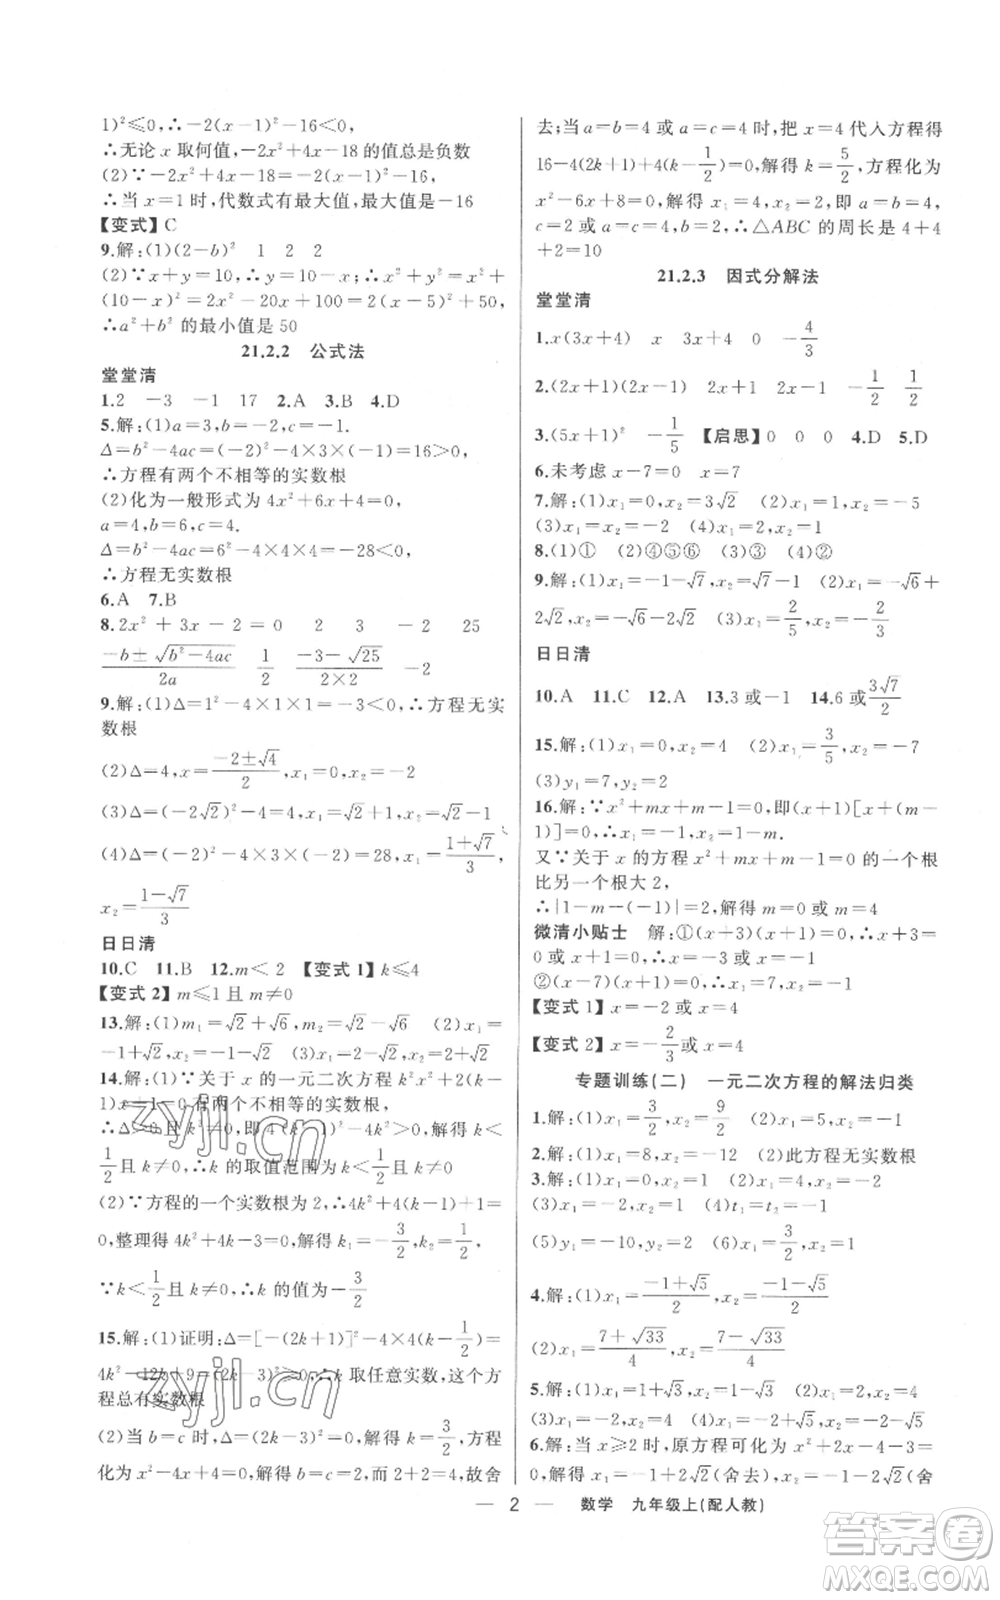 1)²≤0,∴-2(x-1)²-16<0,
∴无论 x 取何值,-2x²+4x-18的值总是负数
(2)∵-2x²+4x-18=-2(x-1)²-16,
∴当 x=1时,代数式有最大值,最大值是-16
【变式】C
9.解:(1)(2-b)² 1 2 2
(2)∵x+y=10,∴y=10-x,∴x²+y²=x²+
(10-x)²=2x²-20x+100=2(x-5)²+50,
∴a²+b² 的最小值是 50
21.2.2 公式法
堂堂清
1.2 -3 -1 17 2.A 3.B 4.D
5.解:(1)a=3,b=-2,c=-1.
Δ=b²-4ac=(-2)²-4×3×(-1)=16>0,
∴方程有两个不相等的实数根
(2)化为一般形式为 4x²+6x+4=0,
a=4,b=6,c=4.
Δ=b²-4ac=6²-4×4×4=-28<0,
∴方程无实数根
6.A 7.B
8.2x²+3x-2=0 2 3 -2 25
(-b±√(b²-4ac))/2a 1/2 (-3-√25)/(2×2) -2
9.解:(1)Δ=1²-4×1×1=-3<0,∴方程无实
数根
(2)Δ=4,x=(-2±√4)/2,x₁=0,x₂=-2
(3)Δ=(-2√2)²-4=4,x₁=√2+1,x₂=√2-1
(4)Δ=(-2)²-4×3×(-2)=28,x₁=(1+√7)/3,
x₂=(1-√7)/3
日日清
10.C 11.B 12.m<2 【变式 1】k≤4
【变式 2】m≤1 且 m≠0
13.解:(1)m₁=√2+√6,m₂=√2-√6 (2)x₁=
-1+√2,x₂=-1-√2 (3)x₁=x₂=√2
14.解:(1)∵关于 x 的一元二次方程 k²x²+4(k-
1)x+1=0 有两个不相等的实数根,
∴Δ>0 且 k≠0,即[4(k-1)]²-4k²>0,解得 k<
1/2 且 k≠0,∴k 的取值范围为 k<1/2 且 k≠0
(2)∵方程的一个实数根为 2,∴4k²+4(k-1)+1=
0,整理得 4k²+4k-3=0,解得 k₁=-3/2,k₂=1/2.
∵k<1/2 且 k≠0,∴k 的值为-3/2
15.解:(1)证明:Δ=[-(2k+1)]²-4×4(k-1/2)=
4k²-12k+9=(2k-3)²≥0,∴k 取任意实数,这个方
程总有实数根
(2)当 b=c 时,Δ=(2k-3)²=0,解得 k=3/2,方程
化为 x²-4x+4=0,解得 b=c=2,而 2+2=4,故舍
去;当 a=b=4 或 a=c=4 时,把 x=4 代入方程得
16-4(2k+1)+4(k-1/2)=0,解得 k=5/2,方程化为
x²-6x+8=0,解得 x₁=4,x₂=2,即 a=b=4,
c=2 或 a=c=4,b=2,∴△ABC 的周长为 4+4
+2=10
21.2.3 因式分解法
堂堂清
1.x(3x+4) x 3x+4 0 -4/3
2.(2x+1)(2x-1) 2x+1 2x-1 -1/2 1/2
3.(5x+1)² -1/5 【启思】0 0 0 4.D 5.D
6.未考虑 x-7=0 x=7
7.解:(1)x₁=0,x₂=3√2 (2)x₁=x₂=-5
(3)x₁=x₂=-2 (4)x₁=2,x₂=1
8.(1)① (2)④⑤⑥ (3)③ (4)②
9.解:(1)x₁=-1-√7,x₂=√7-1 (2)x₁=-√6+
2√2,x₂=-√6-2√2 (3)x₁=2/5,x₂=2/3
日日清
10.A 11.C 12.A 13.3 或-1 14.6 或3√7/2
15.解:(1)x₁=0,x₂=4 (2)x₁=3/5,x₂=-7
(3)y₁=7,y₂=2
16.解:∵x²+mx+m-1=0,即(x+1)[x+(m-
1)]=0,∴x₁=-1,x₂=1-m.
又∵关于 x 的方程 x²+mx+m-1=0 的一个根
比另一个根大 2,
∴|1-m-(-1)|=2,解得 m=0 或 m=4
微清小贴士 解:①(x+3)(x-1)=0
②(x-7)(x+1)=0
【变式 1】x=-2 或 x=4
【变式 2】x=-2/3 或 x=4
专题训练(二) 一元二次方程的解法归类
1.解:(1)x₁=3/2,x₂=9/2 (2)x₁=5,x₂=-1
2.解:(1)x₁=8,x₂=-12 (2)此方程无实数根
3.解:(1)x₁=5,x₂=-1 (2)x₁=4,x₂=-2
(3)x₁=x₂=1 (4)t₁=t₂=-1
(5)y₁=-10,y₂=0 (6)x₁=3/2,x₂=1
4.解:(1)x₁=(-1+√5)/2,x₂=(-1-√5)/2
(2)x₁=(7+√33)/4,x₂=(7-√33)/4
(3)x₁=0,x₂=-2 (4)x₁=2-√5,x₂=-2-√5
6.解:当 x≥2 时,原方程可化为 x²+2x-4-3=
0,解得 x₁=-1-2√2(舍去),x₂=-1+2√2(舍
— 2 — 数学 九年级上(配人教)
zyjl.cn
zyjl.cn
答案圈
MXQE.COM